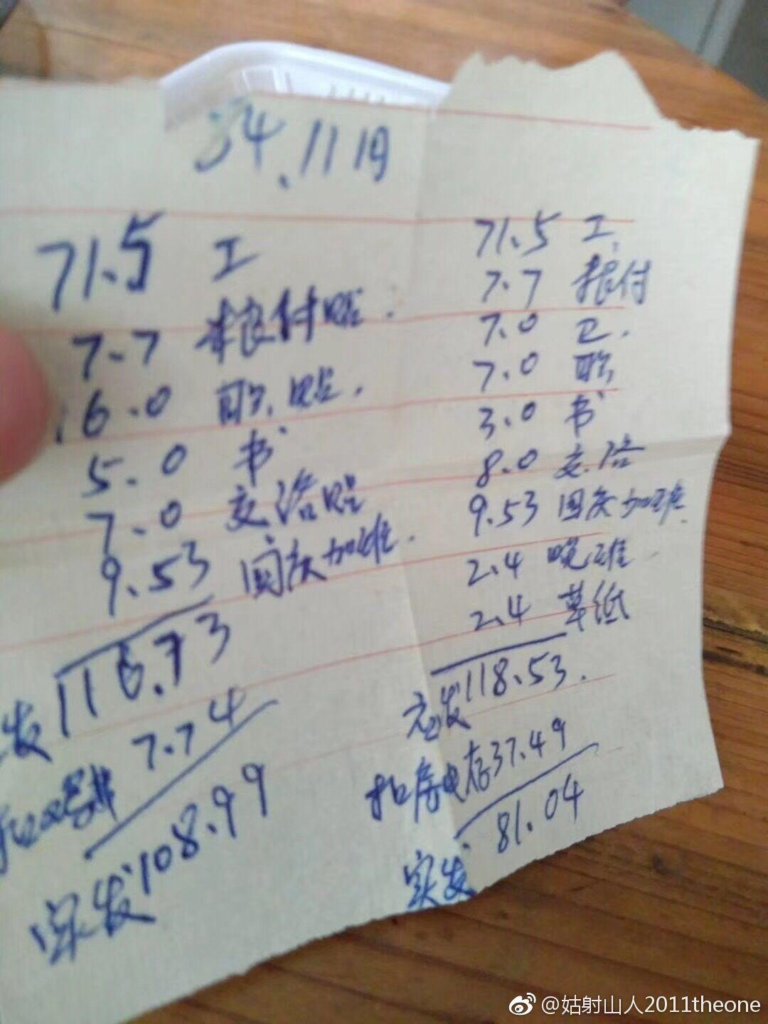 .11月
71.5 工
7.7 粮付贴.
16.0 职.贴.
5.0 书
7.0 交洛贴
9.53 国庆加班.
发 116.73
7.74
实发 108.99
71.5 工.
7.7 粮付
7.0 卫.
7.0 职
3.0 书
8.0 交洛
9.53 国庆加班.
2.4 晚班.
2.4 草纸
应发 118.53.
扣房电存 37.49
实发 81.04
@姑射山人2011theone